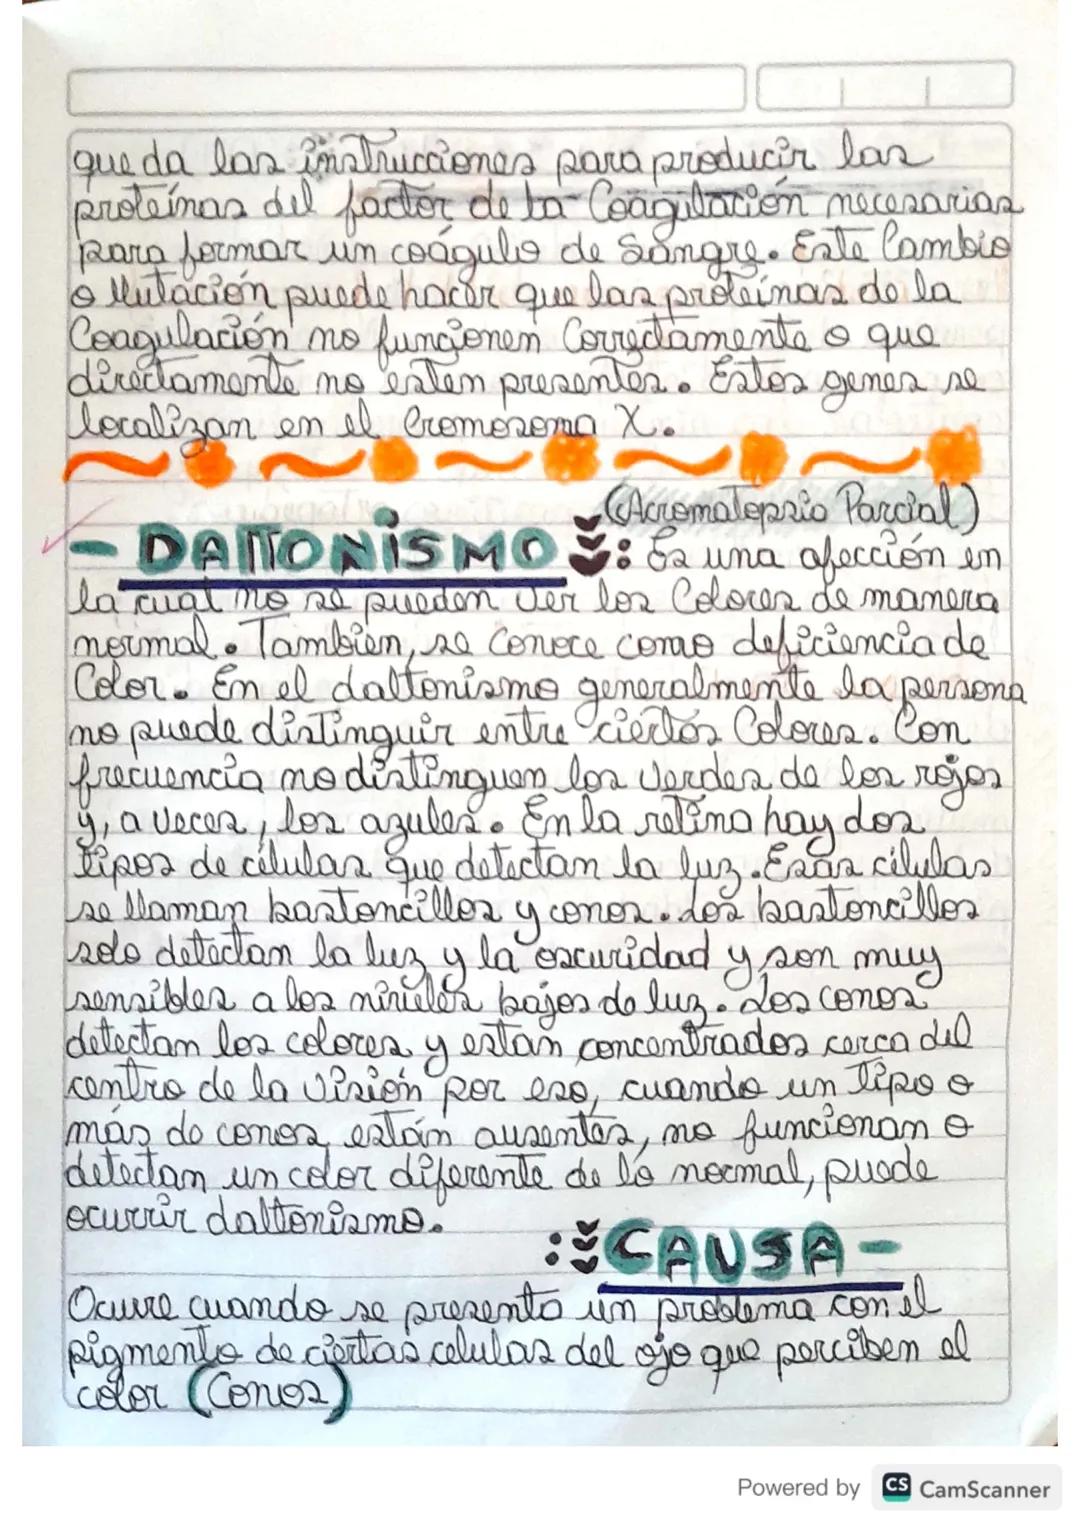 que da las instrucciones para producir las
proteínas del factor de la Coagulación necesarias
para formar un coágulo de Sangre. Este Cambio
o Mutación puede hacer que las proteínas de la
Coagulación no funcionen Correctamente o que
directamente no esten presentes. Estos genes se
localizan en el Cromosoma X.
(Acromatopsia Parcial)
- DALTONiSMO : Es una afección en
la cual no se pueden ver los Colores de manera
normal. Tambien, se conoce como deficiencia de
Color. En el daltonismo generalmente la persona
no puede distinguir entre ciertos Colores. Con
frecuencia no distinguen los verdes de los rojos
y, a veces, los azules. En la retina hay dos
tipos de células que detectan la luz. Esas células
se llaman bastoncillos y conos. Los bastoncillos
solo detectan la luz y la oscuridad y son muy
sensibles a los niveles bajos de luz. Los conos
detectan los colores y estan concentrados cerca del
centro de la visión por eso, cuando un tipo o
más de conos están ausentes, no funcionan o
detectan un color diferente de lo normal, puede
ocurrir daltonismo.
: CAUSA -
Ocurre cuando se presenta un problema con el
pigmento de ciertas celulas del ojo que perciben el
color (Conos)
Powered by CS CamScanner